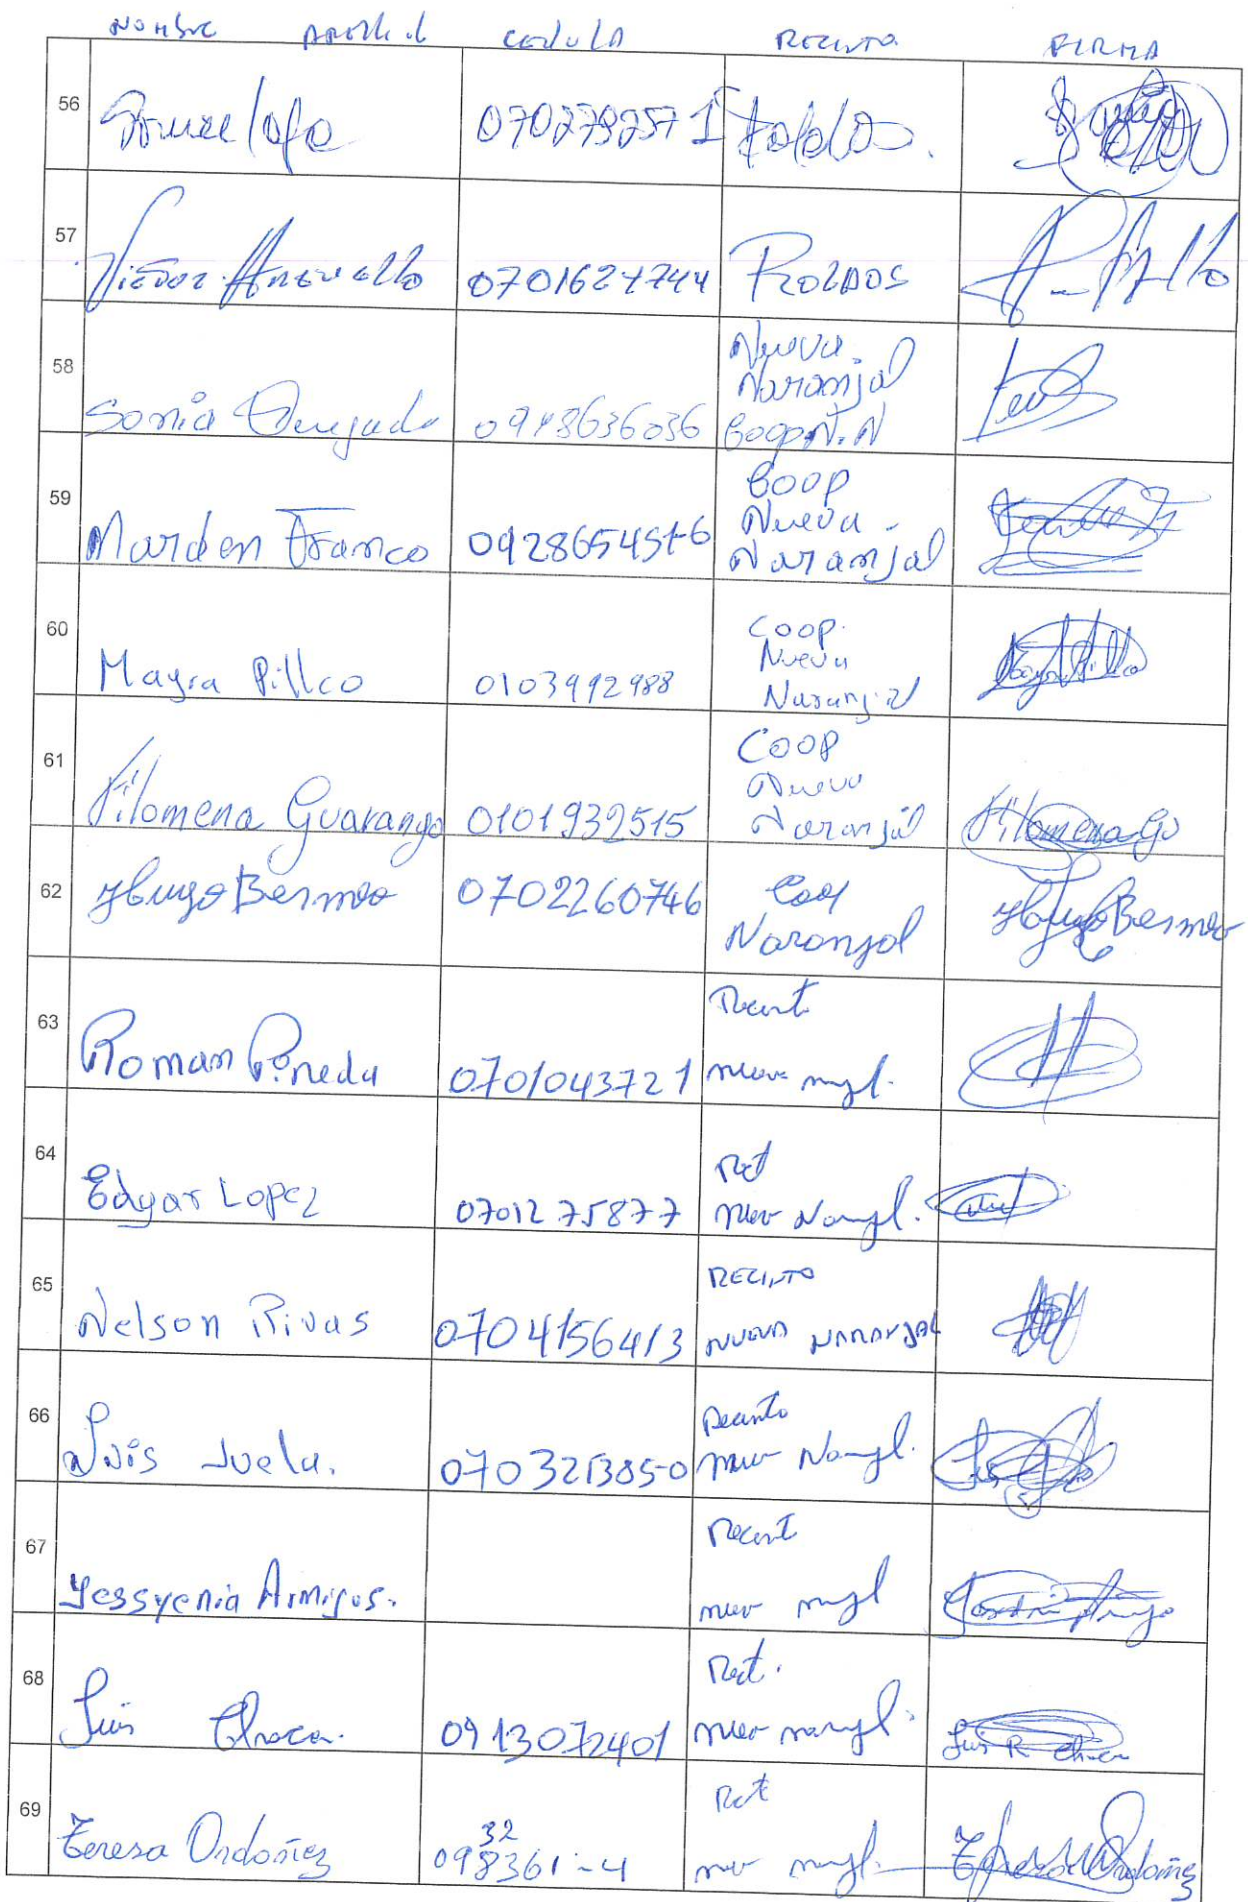 NOMBRE APELLID CEDULA RECINTO FIRMA
56 0702792571 Roldos.
57 Victor Arevallo 0701627744 ROLDOS
58 Sonia 0948636036 Nueva Naranjal Coop N.N
59 Marden Franco 092865451-6 Coop Nueva Naranjal
60 Mayra Pillco 0103992988 Coop. Nueva Naranjal Mayra Pillco
61 Filomena Guarango 0101932515 Coop Nuevo Naranjal Filomena Go
62 Hugo Bermeo 0702260746 Coop Naranjal Hugo Bermeo
63 Roman Pineda 0701043721 Recint
64 Edgar Lopez 0701275877 Rect
65 Nelson Rivas 0704156413 RECINTO NUEVA NARANJAL
66 Luis Juela. 070321385-0 Recinto
67 Yessyenia Armijos. Recint
68 Luis Chaca. 0913072401 Rect. Luis R Chaca
69 Teresa Ordoñez 32 098361-4 Rct Teresa Ordoñez